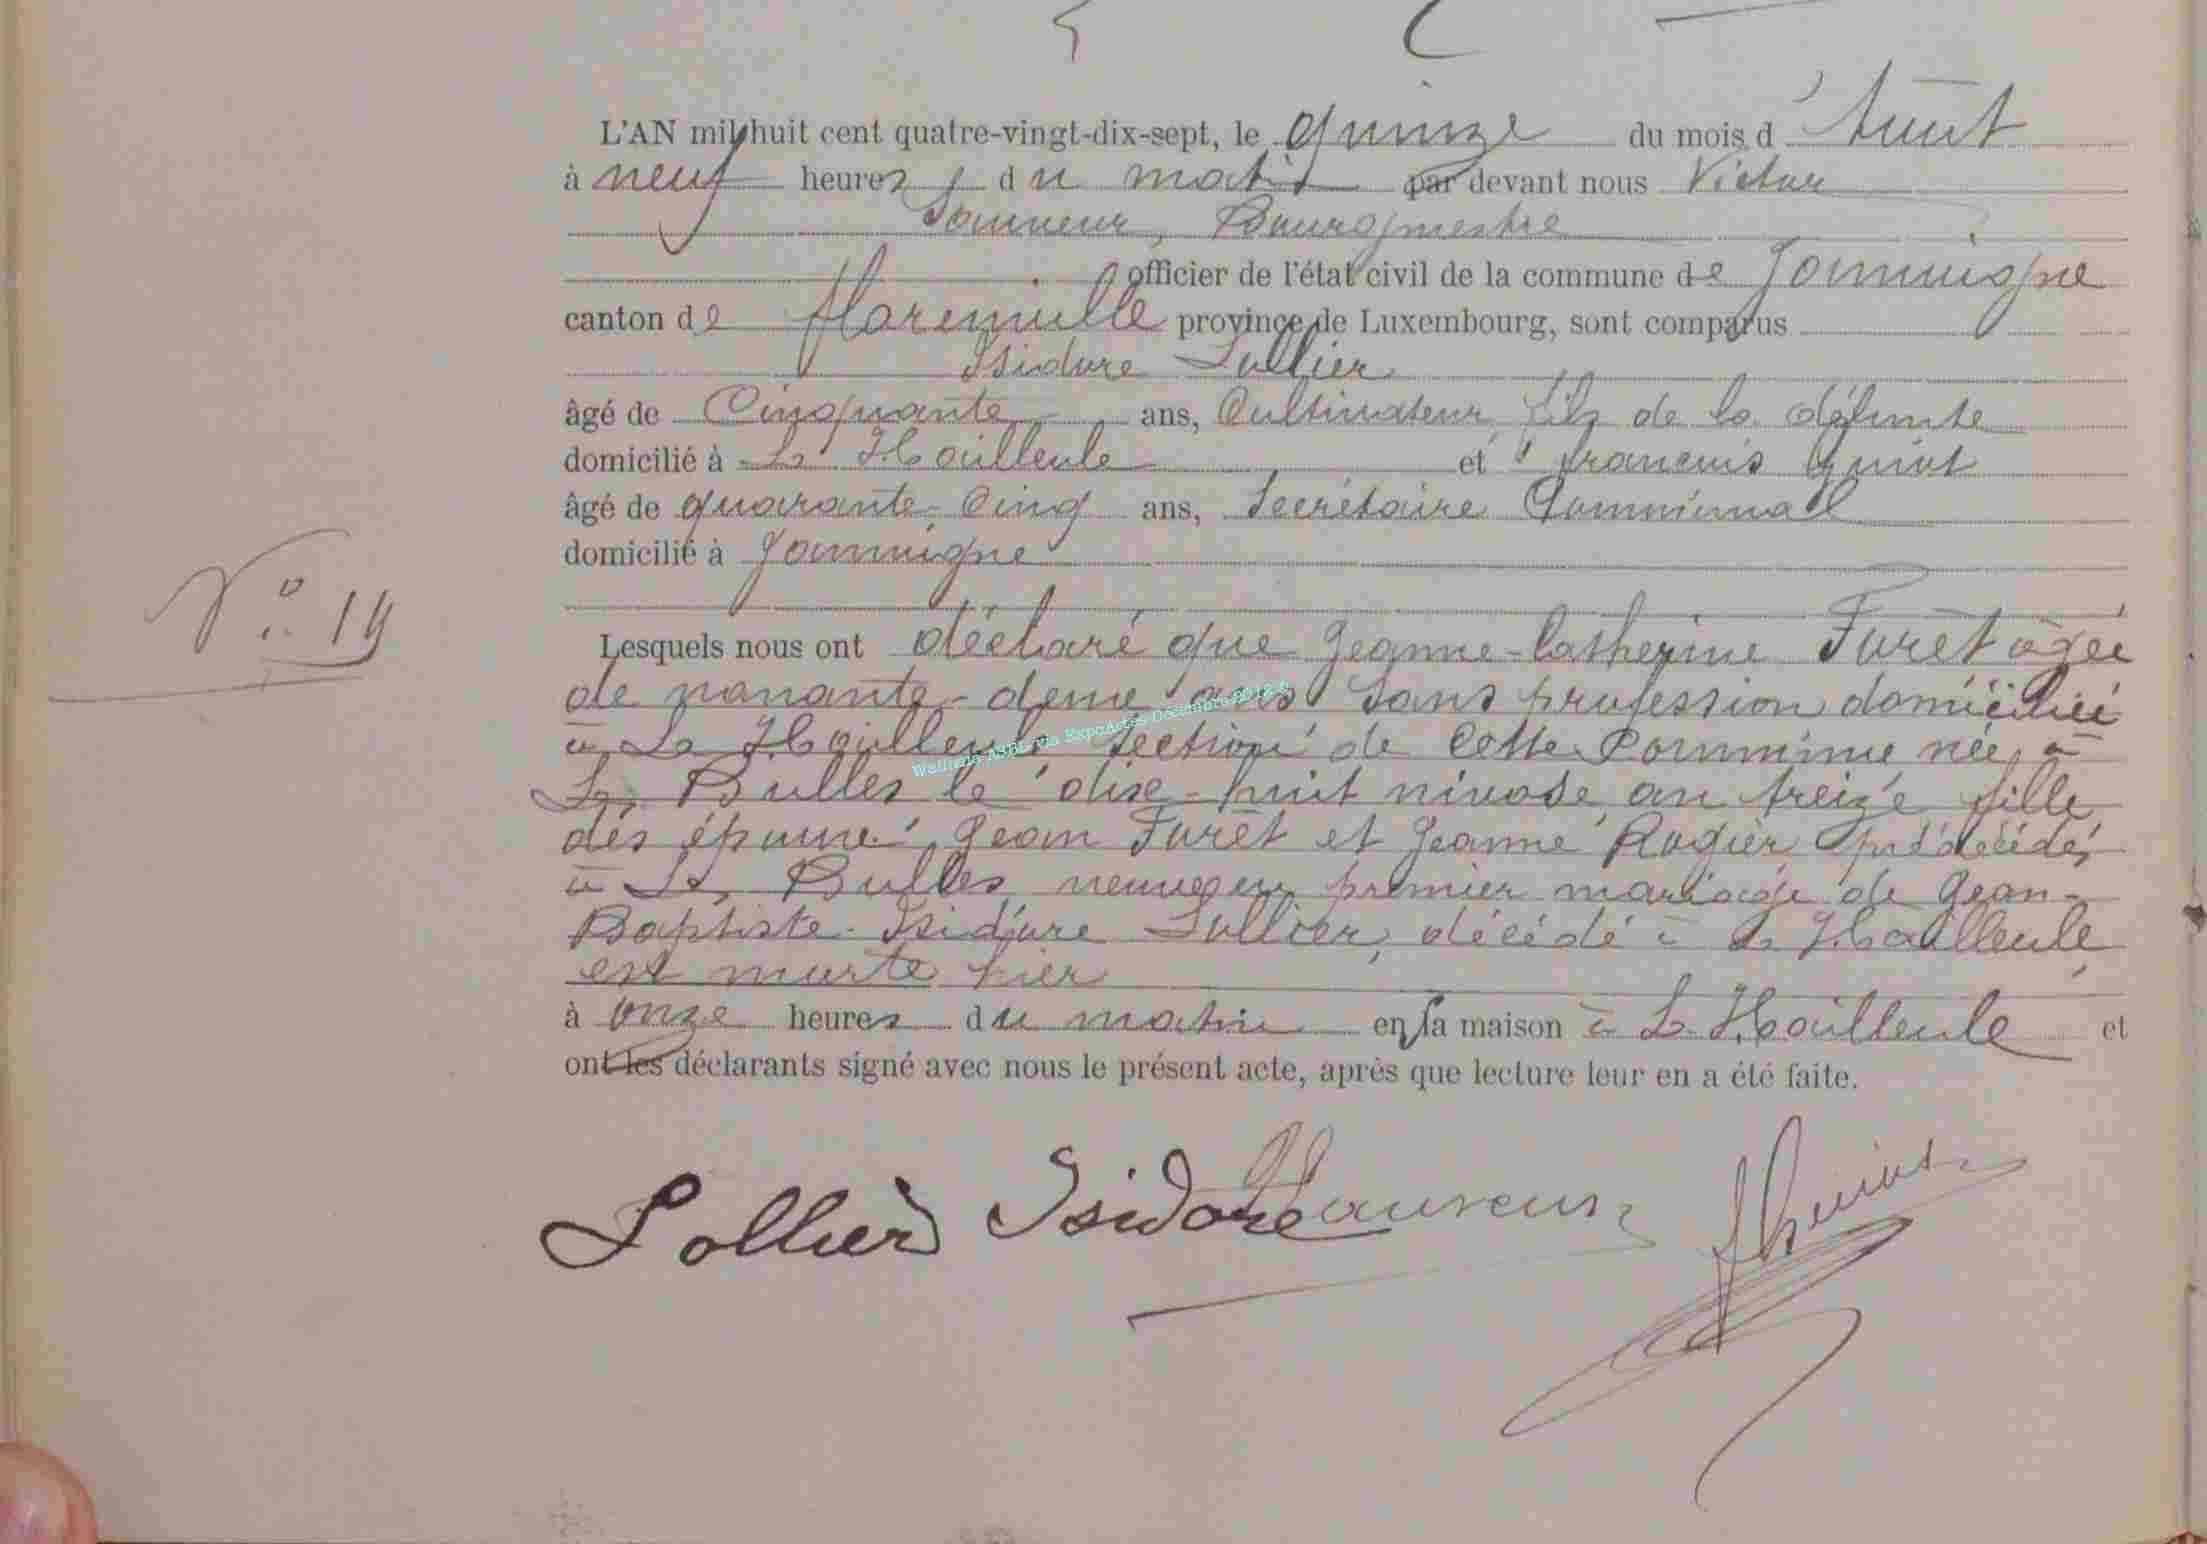 L'AN mil huit cent quatre-vingt-dix-sept, le quinze du mois d'Août
à neuf heures du matin par devant nous Victor
Bourgmestre
officier de l'état civil de la commune de Jamoigne
canton de Florenville province de Luxembourg, sont comparus
Isidore Lollier
âgé de Cinquante ans, Cultivateur fils de la défunte
domicilié à La Hailleule et François Guiot
âgé de quarante-Cinq ans, Secrétaire Communal
domicilié à Jamoigne
N° 19
Lesquels nous ont déclaré que Jeanne-Catherine Furèt âgée
de nonante-deux ans sans profession domiciliée
à La Hailleule section de Cette Commune née à
Les Bulles le dix-huit nivose an treize fille
des époux Jean Furèt et Jeanne Rogier prédécédés
à Les Bulles, veuve en premier mariage de Jean-
Baptiste-Isidore Lollier, décédé à La Hailleule
est morte hier
à onze heures du matin en sa maison à La Hailleule et
ont les déclarants signé avec nous le présent acte, après que lecture leur en a été faite.
Lollier Isidore FGuiot